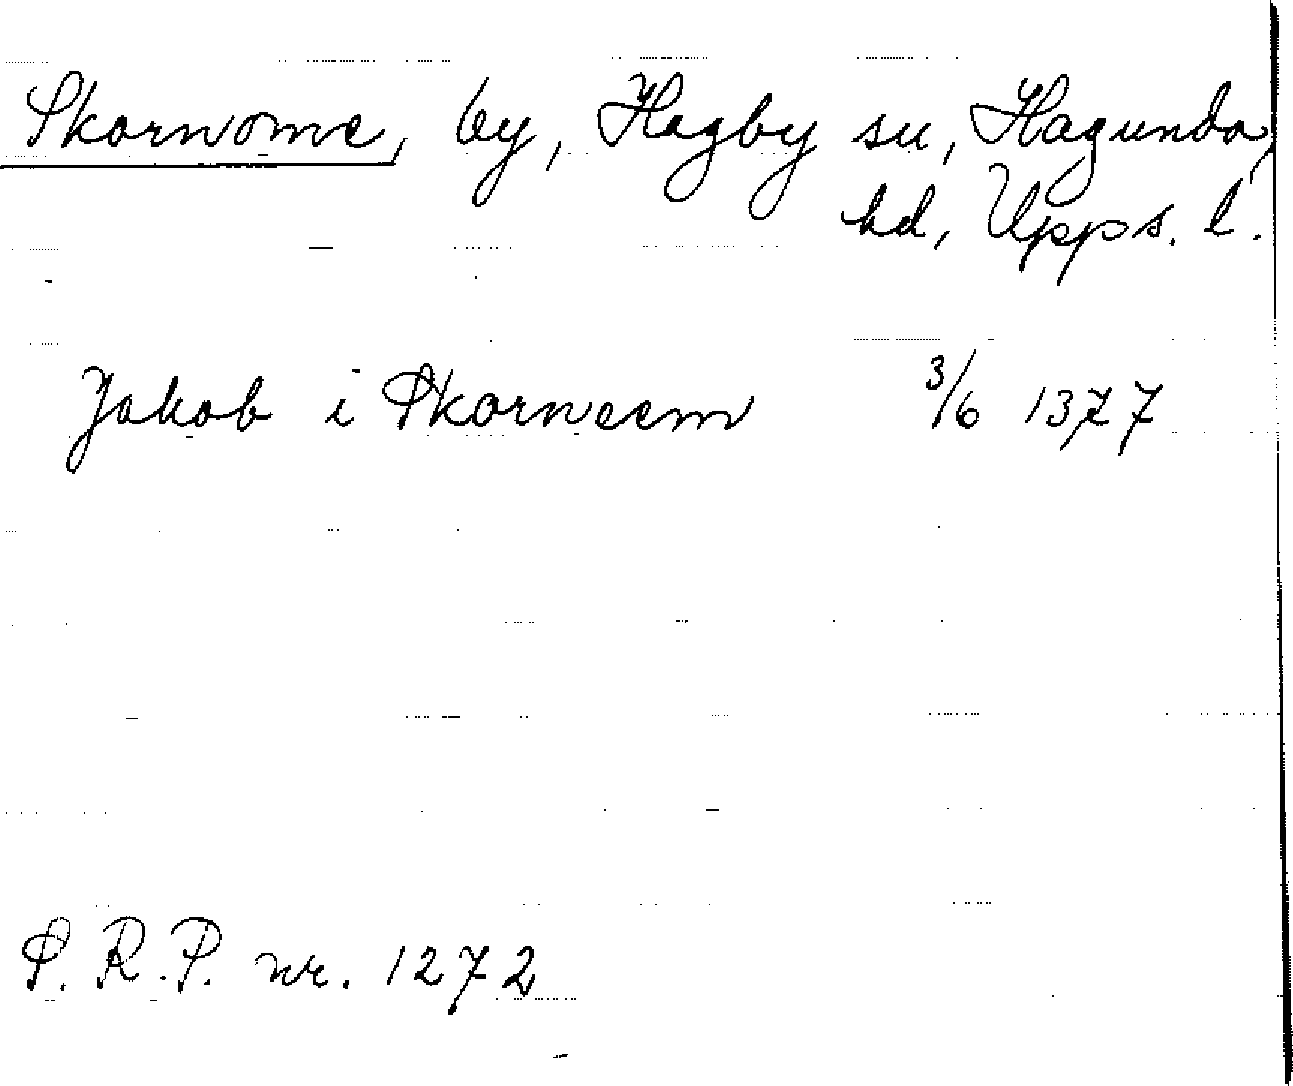 Skarnome, by, Hagby sn, Hagunda
hd, Upps. l.
Jakob i Skarneem 3/6 1377
S. R. P. nr. 1272